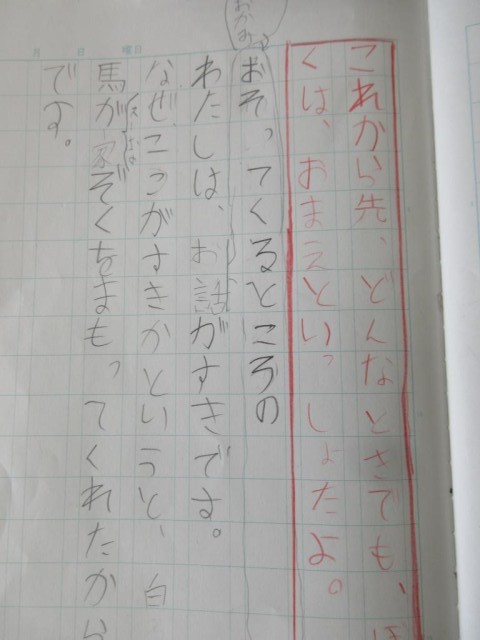 これから先、どんなときでも、ぼ
くは、おまえといっしょだよ。
おおかみ
おそってくるところの
わたしは、お話がすきです。
なぜ、ここがすきかというと、白
馬が家ぞくをまもってくれたから
です。
月 日 曜日